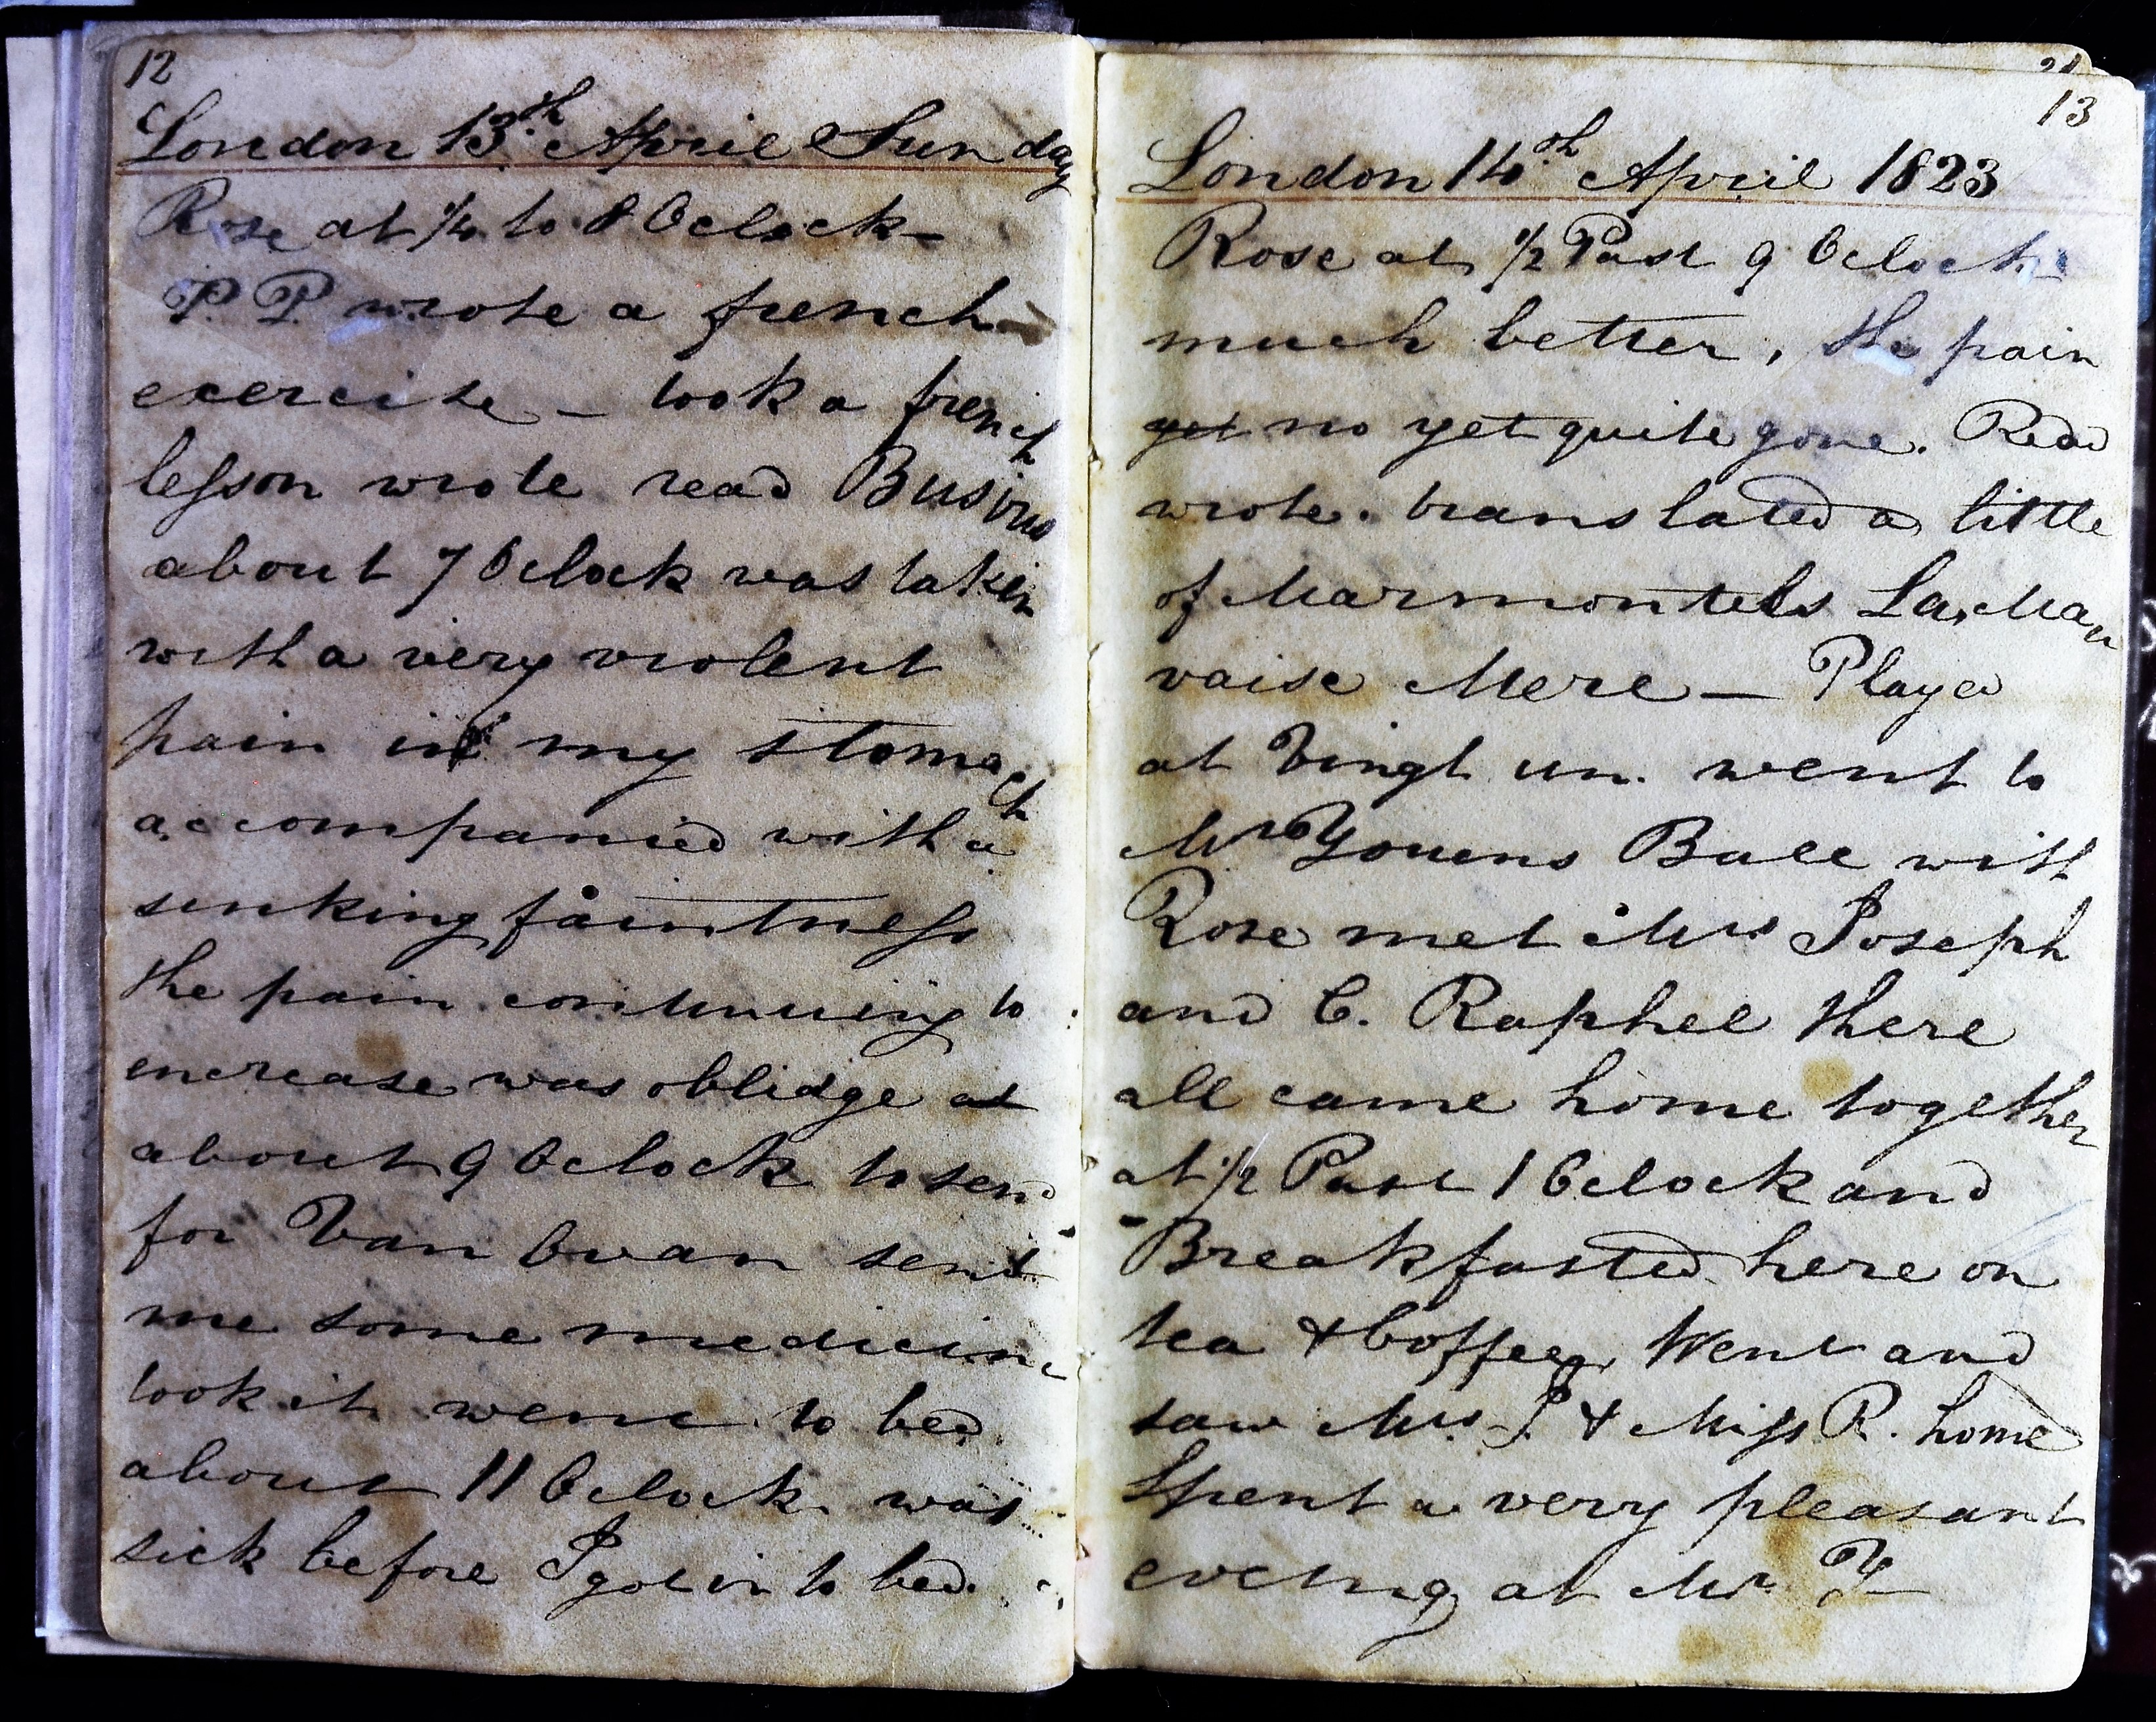 12
London 13th April Sunday
Rose at 1/4 to 8 Oclock
P. P. wrote a french
exercise – took a french
lesson wrote read Business
about 7 Oclock was taken
with a very violent
pain in my stomach
accompanied with a
sinking faintness
the pain continuing to
increase was oblidge at
about 9 Oclock to send
for Van Ovan sent
me some medicine
took it went to bed
about 11 Oclock was
sick before I got in to bed.
13
London 14th April 1823
Rose at 1/2 Past 9 Oclock
much better, the pain
yet no yet quite gone. Read
wrote. translated a little
of Marmontels La Mau
vaise Mere – Played
at Vingt un. went to
Mr Youens Ball with
Rose met Mrs Joseph
and C. Raphel there
all came home together
at 1/2 Past 1 Oclock and
Breakfasted here on
tea & Coffee, Went and
saw Mrs J. & Miss R. home
Spent a very pleasant
evening at Mr. Y